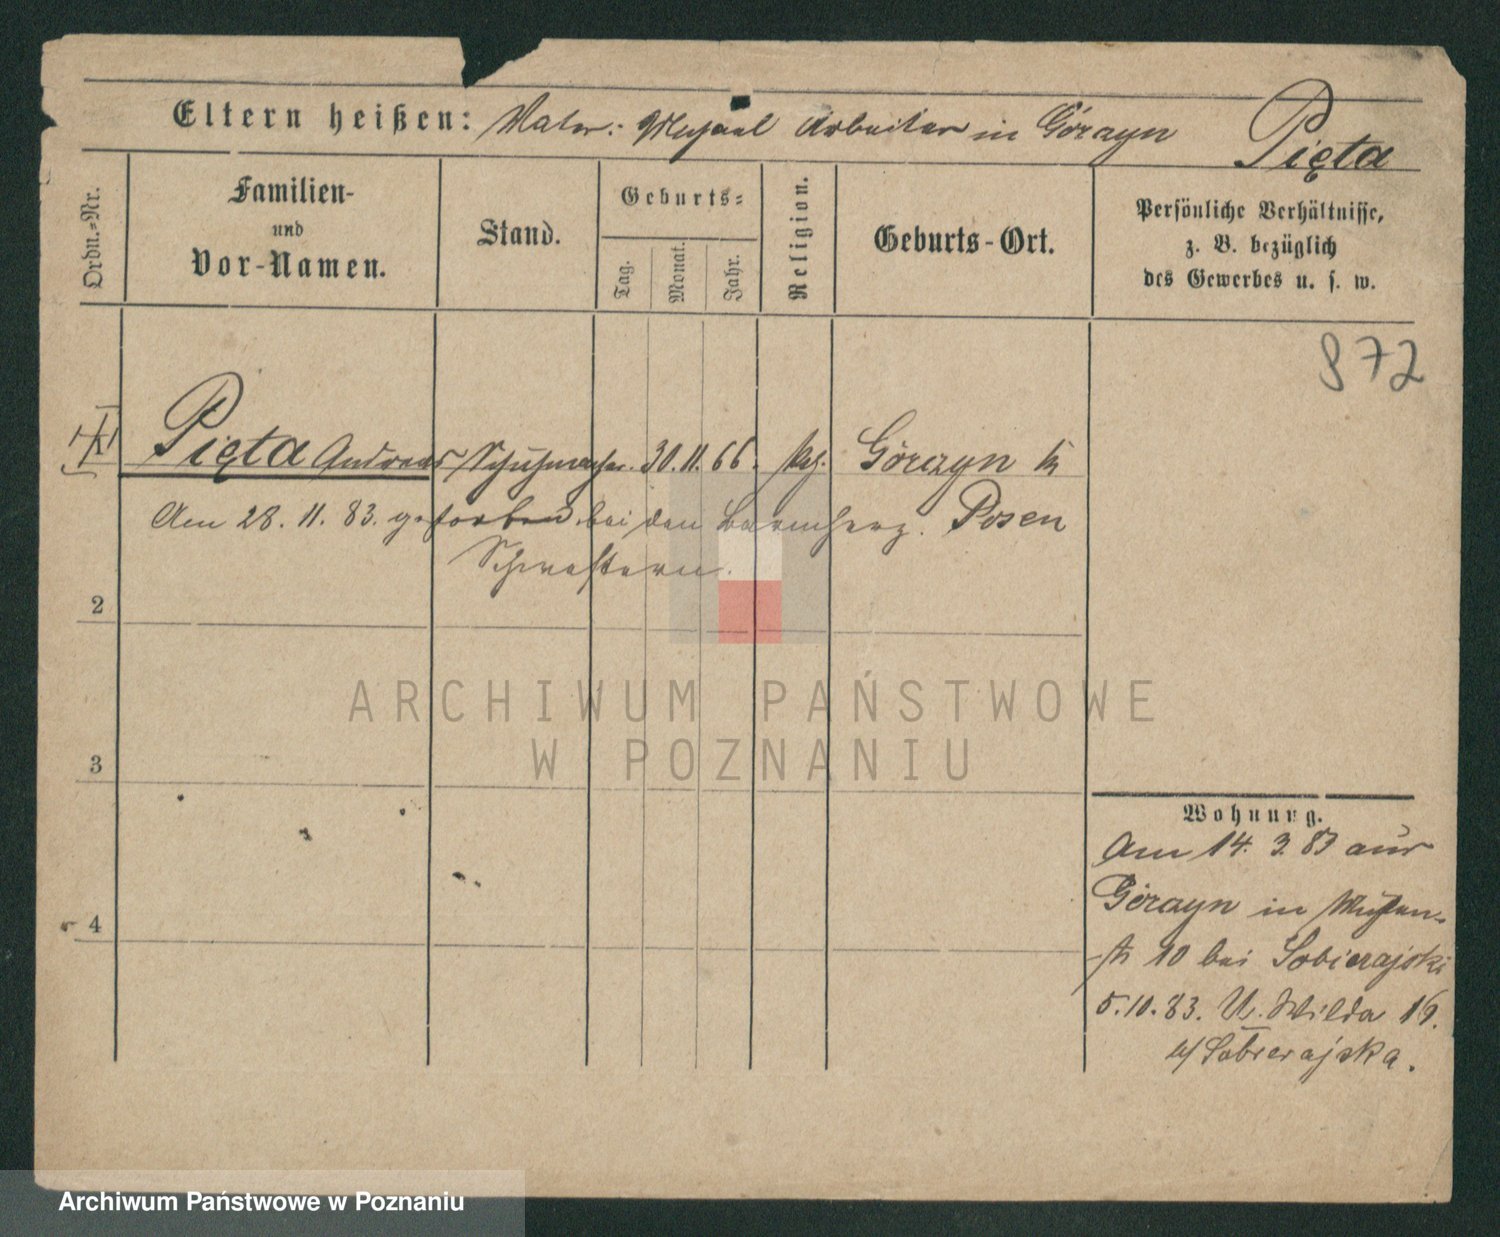 Eltern heißen: Vater: Michael Arbeiter in Górczyn Pięta
Ordn.-Nr.
Familien-
und
Vor-Namen.
Stand.
Geburts-
Tag. Monat. Jahr.
Religion.
Geburts-Ort.
Persönliche Verhältnisse,
z. B. bezüglich
des Gewerbes u. s. w.
872
Pięta Andreas Schuhmacher. 30. 11. 66. kath. Górczyn Kr
Am 28. 11. 83. gestorben bei den barmherz. Posen
Schwestern.
2
3
4
Wohnung.
Am 14. 3. 83 aus
Górczyn in
10 bei Sobierajski
5. 10. 83. U. Wilda 16.
b/ Sobierajska.
ARCHIWUM PAŃSTWOWE
W POZNANIU
Archiwum Państwowe w Poznaniu